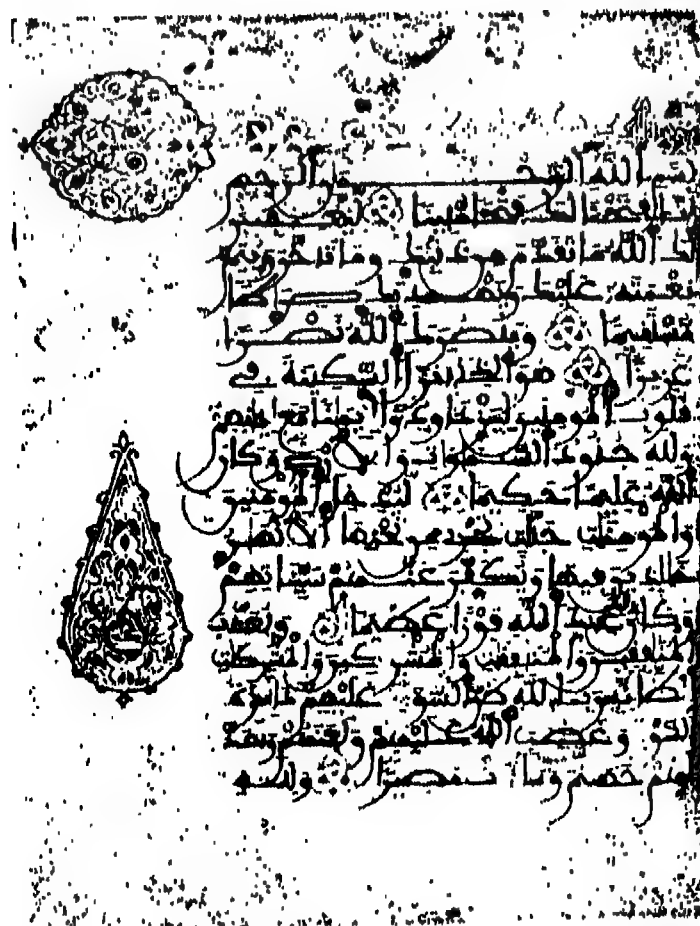 بسم الله الرحمن الرحيم
إنا فتحنا لك فتحا مبينا ليغفر
لك الله ما تقدم من ذنبك وما تأخر ويتم
نعمته عليك ويهديك صراطا
مستقيما وينصرك الله نصرا
عزيزا هو الذي أنزل السكينة في
قلوب المؤمنين ليزدادوا إيمانا مع إيمنهم
ولله جنود السموات والأرض وكان
الله عليما حكيما ليدخل المؤمنين
والمؤمنت جنت تجري من تحتها الأنهر
خلدين فيها ويكفر عنهم سيئاتهم
وكان ذلك عند الله فوزا عظيما ويعذب
المنفقين والمنفقت والمشركين والمشركت
الظانين بالله ظن السوء عليهم دائرة
السوء وغضب الله عليهم ولعنهم وأعد
لهم جهنم وساءت مصيرا ولله